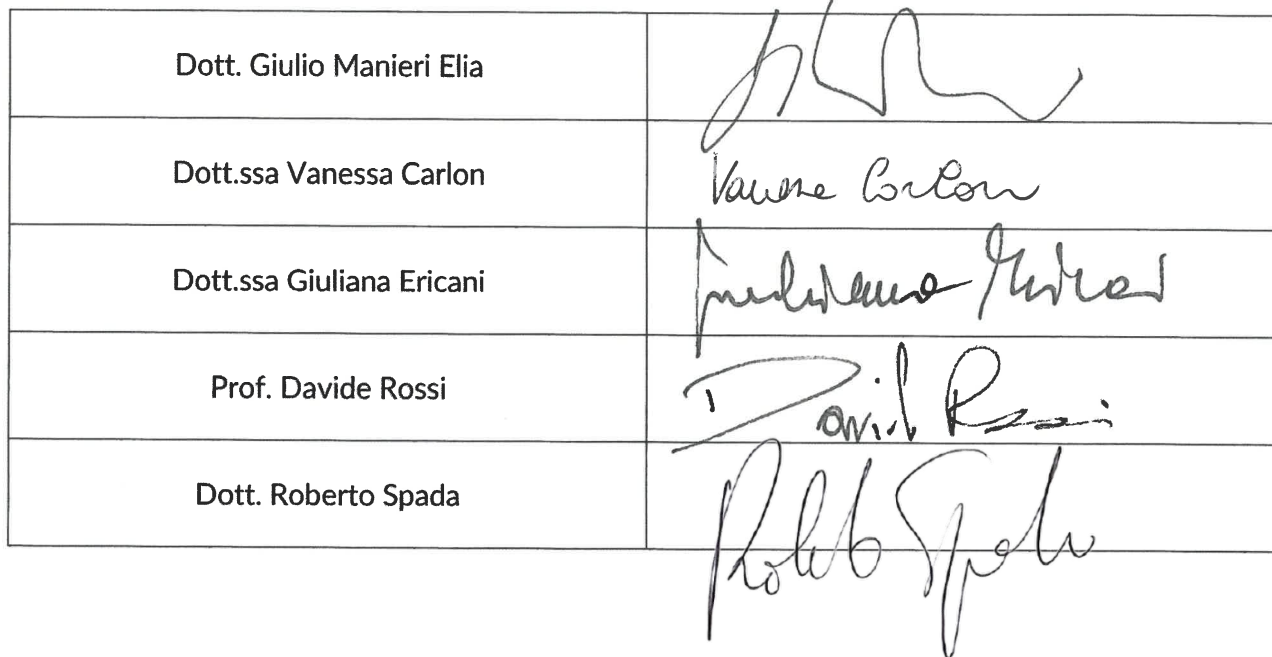 Dott. Giulio Manieri Elia
Dott.ssa Vanessa Carlon
Vanessa Carlon
Dott.ssa Giuliana Ericani
Giuliana Ericani
Prof. Davide Rossi
Davide Rossi
Dott. Roberto Spada
Roberto Spada